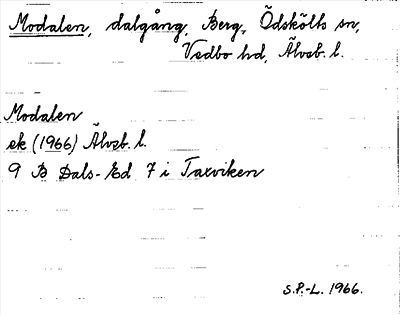 Modalen, dalgång, Berg, Ödskölts sn,
Vedbo hd, Älvsb. l.
Modalen
ek (1966) Älvsb. l.
9 B Dals-Ed 7 i Taxviken
S.P.-L. 1966.